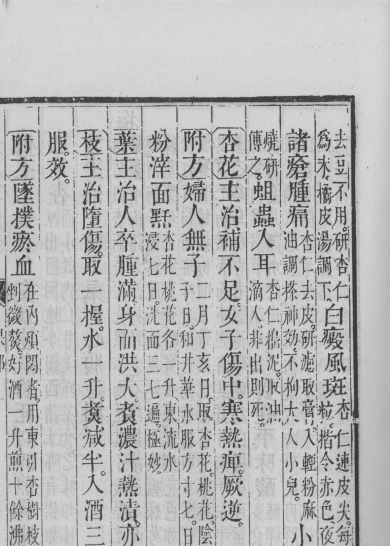 去豆不用研杏仁
爲末橘皮湯調下
白癜風斑
杏仁連皮尖每
粒指令赤色夜
諸瘡腫痛
杏仁去皮研濾取膏入輕粉麻
油調搽神効不拘大人小兒
小
燒研
傳之
蛆蟲入耳
杏仁搗泥取油
滴入非出則死
杏花主治補不足女子傷中寒熱痺厥逆
附方婦人無子
二月丁亥日取杏花桃花陰
子日和井華水服方寸七日
粉滓面䵟
杏花桃花各一升東流水
浸七日洗面三七遍極妙
葉主治人卒腫滿身面洪大煑濃汁熱漬亦
枝主治墮傷取一握水一升煑減半入酒三
服效
附方墜撲瘀血
在内煩悶者用東引杏樹枝
判微熬好酒一升煎十餘沸